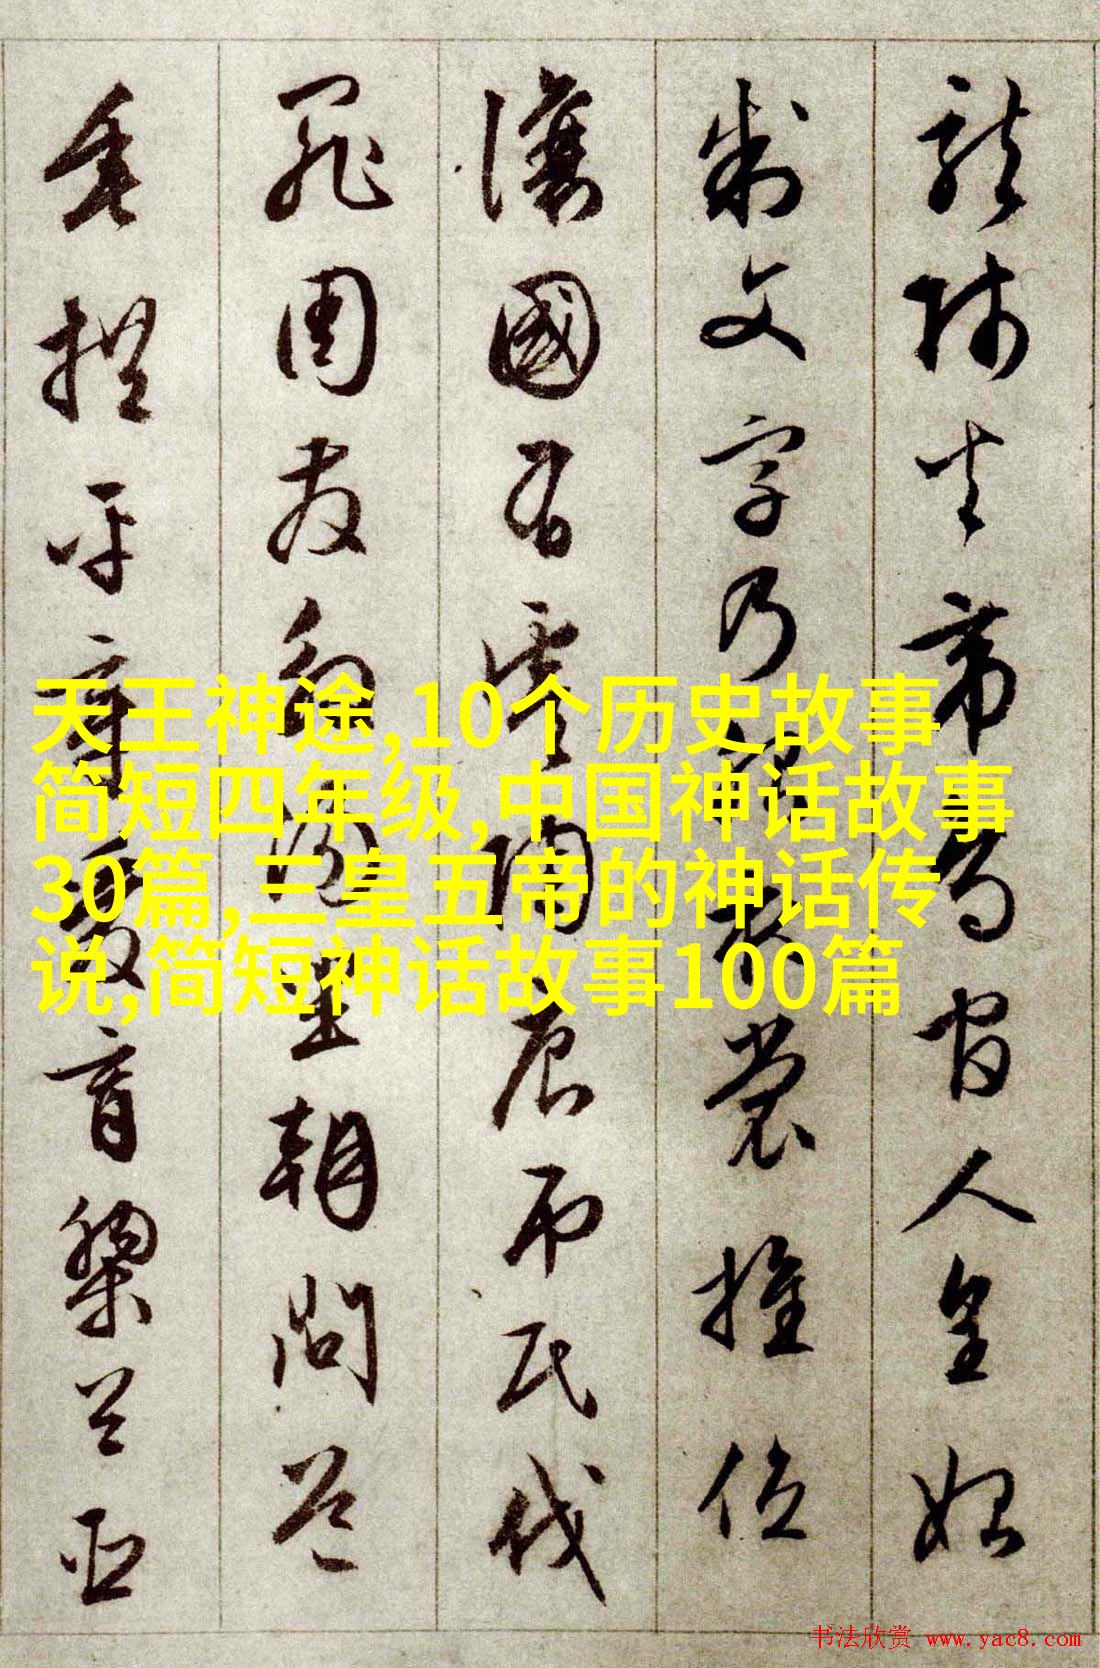 龍師火帝鳥官人皇始
制文字乃服衣裳推位
讓國有虞陶唐弔民伐
罪周發殷湯坐朝問道
垂拱平章愛育黎首臣
天王神途,10个历史故事
简短四年级,中国神话故事
30篇,三皇五帝的神话传
说,简短神话故事100篇
书法欣赏 www.yac8.com